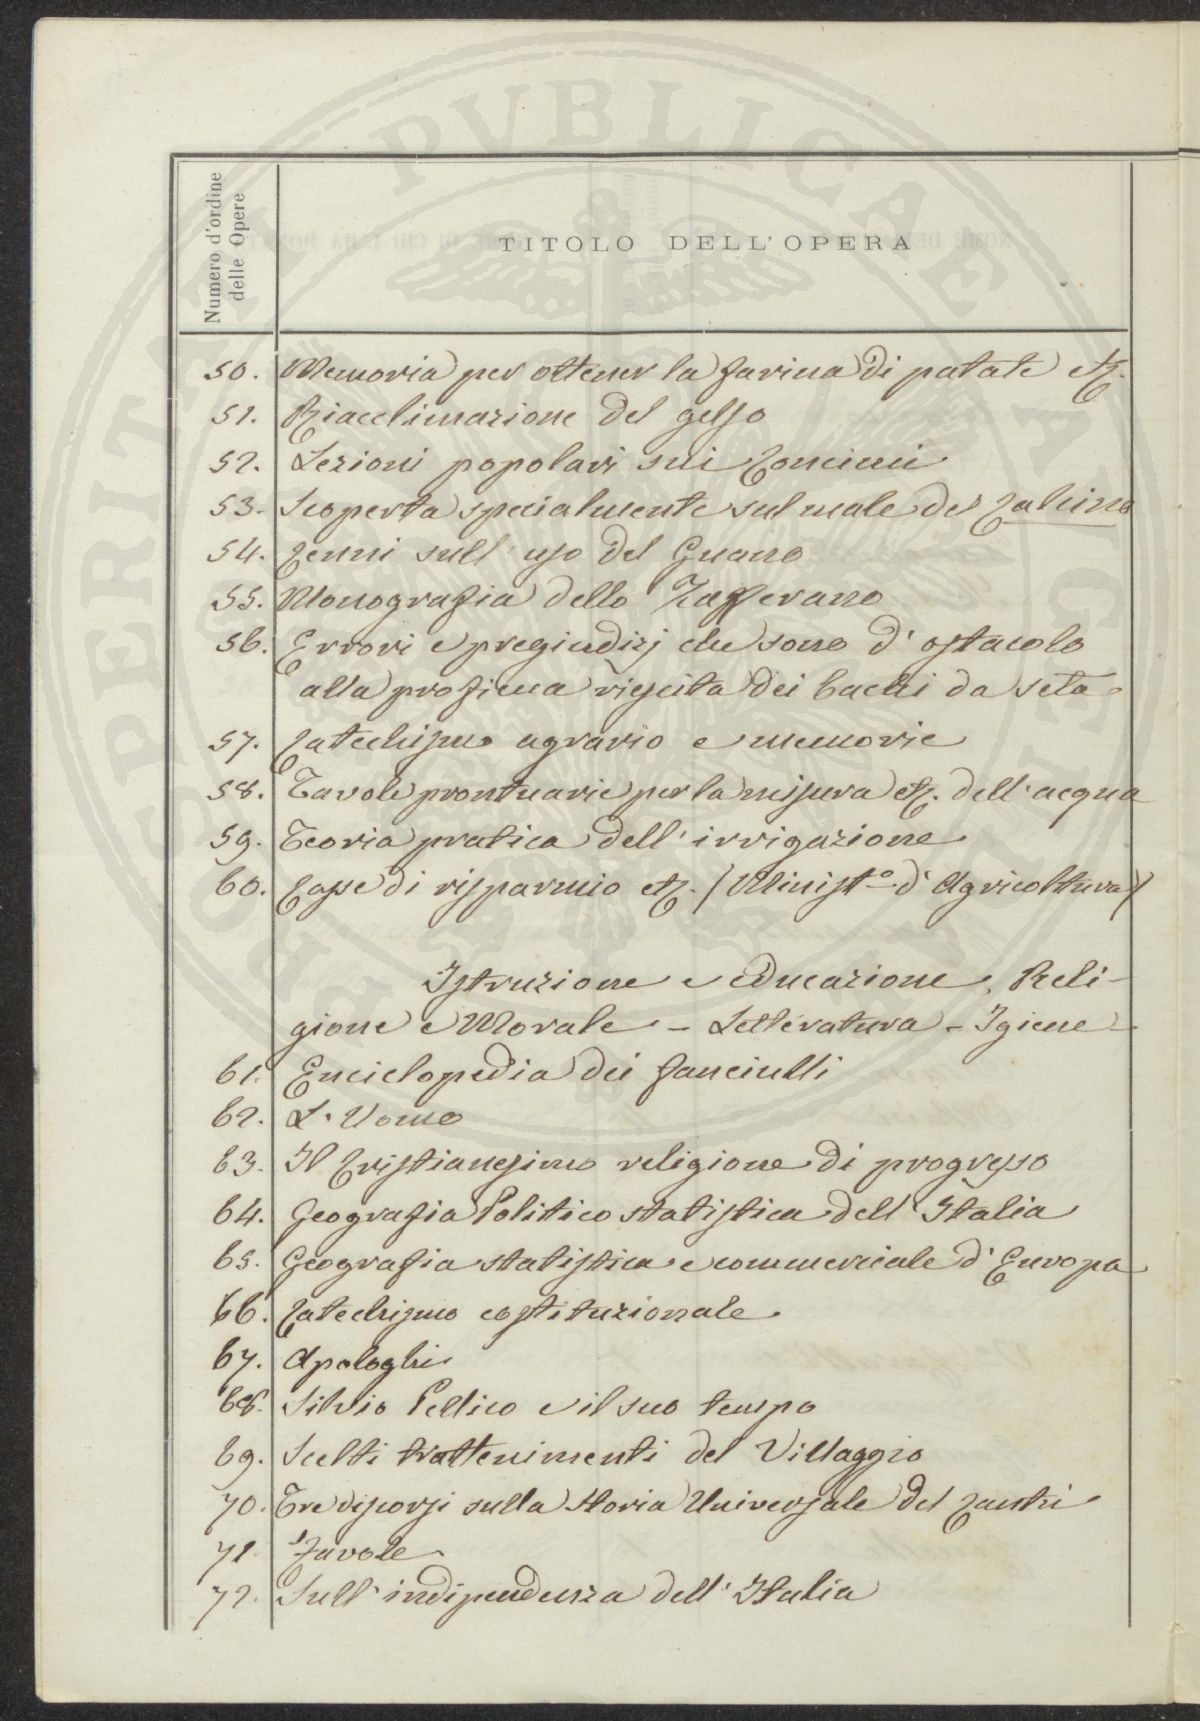 PERITATI PVBLICAE MEDICAMEN
Numero d'ordine
delle Opere
TITOLO DELL'OPERA
50. Memoria per ottener la farina di patate etc.
51. Riacclimazione del gelso
52. Lezioni popolari sui Concimi
53. Scoperta specialmente sul male del Calcino
54. Cenni sull'uso del Guano
55. Monografia dello Zafferano
56. Errori e pregiudizj che sono d'ostacolo
alla proficua riescita dei bachi da seta
57. Catechismo agrario e memorie
58. Tavole prontuarie per la misura etc. dell'acqua
59. Teoria pratica dell'irrigazione
60. Casse di risparmio etc. (Minist.o d'Agricoltura)
Istruzione e educazione, Reli-
gione e Morale - Letteratura - Igiene -
61. Enciclopedia dei fanciulli
62. L'Uomo
63. Il Cristianesimo religione di progresso
64. Geografia Politico statistica dell'Italia
65. Geografia statistica e commerciale d'Europa
66. Catechismo costituzionale
67. Apologhi
68. Silvio Pellico e il suo tempo
69. Scelti trattenimenti del Villaggio
70. Tre discorsi sulla Storia Universale del
71. Favole
72. Sull'indipendenza dell'Italia